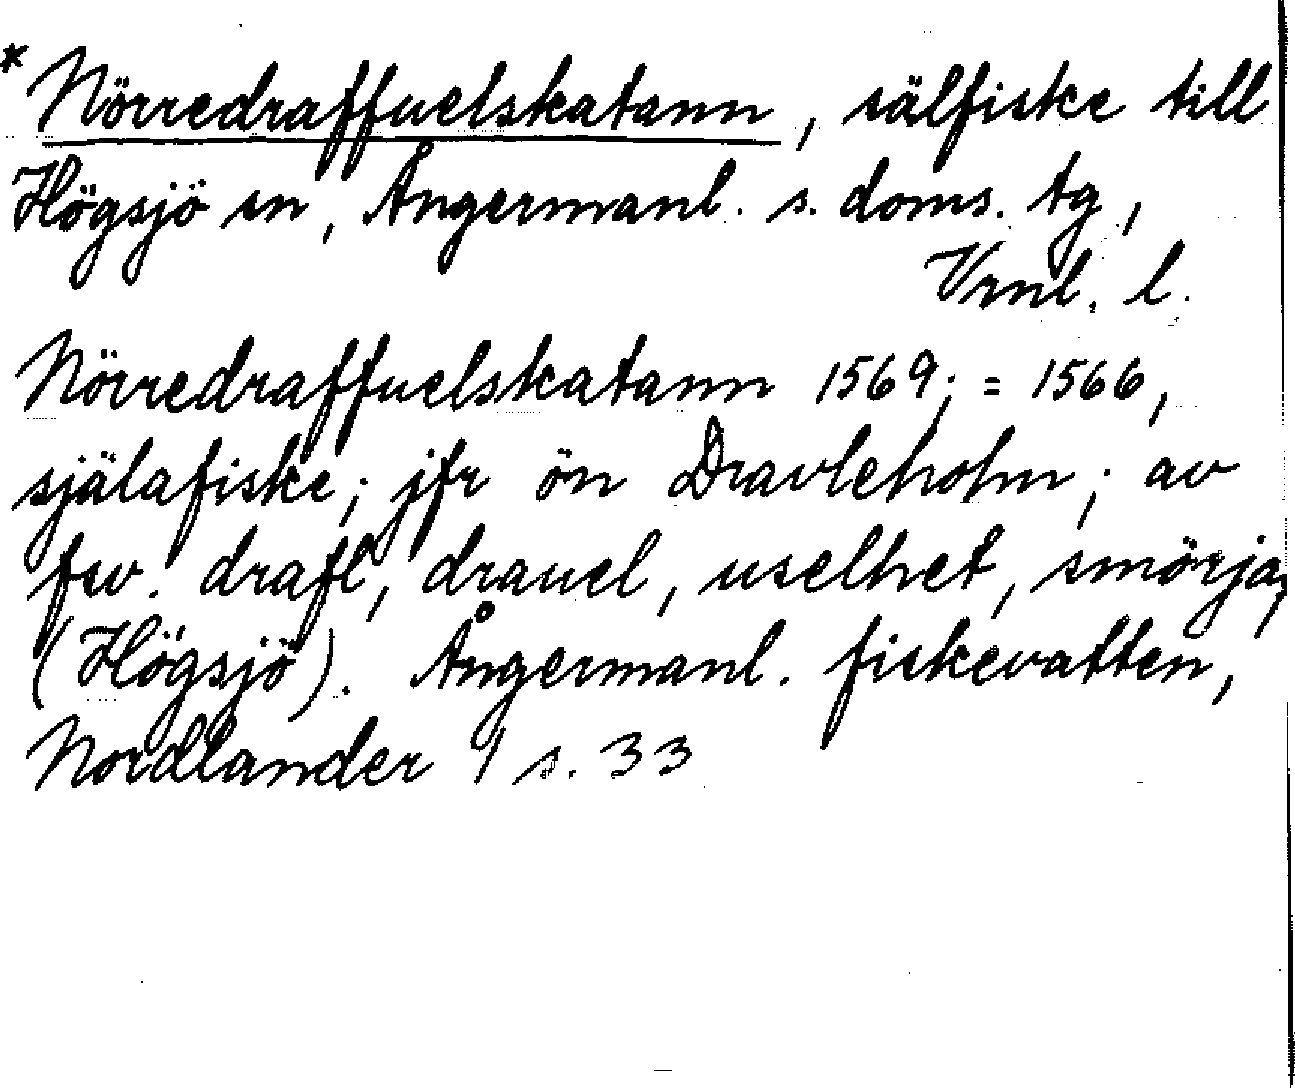 * Nörredraffuelskatann, sälfiske till
Högsjö sn, Ångermanl. s. doms. tg,
Vrnl. l.
Nörredraffuelskatann 1569; = 1566,
själafiske; jfr ön Dravleholm; av
fsv. drafl, drauel, uselhet, smörja,
(Högsjö). Ångermanl. fiskevatten,
Nordlander 1 s. 33